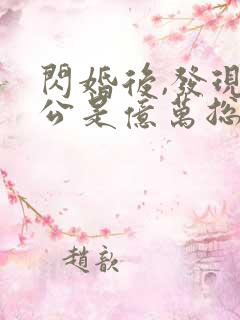 閃婚後,發現
公是億萬總
趙歆